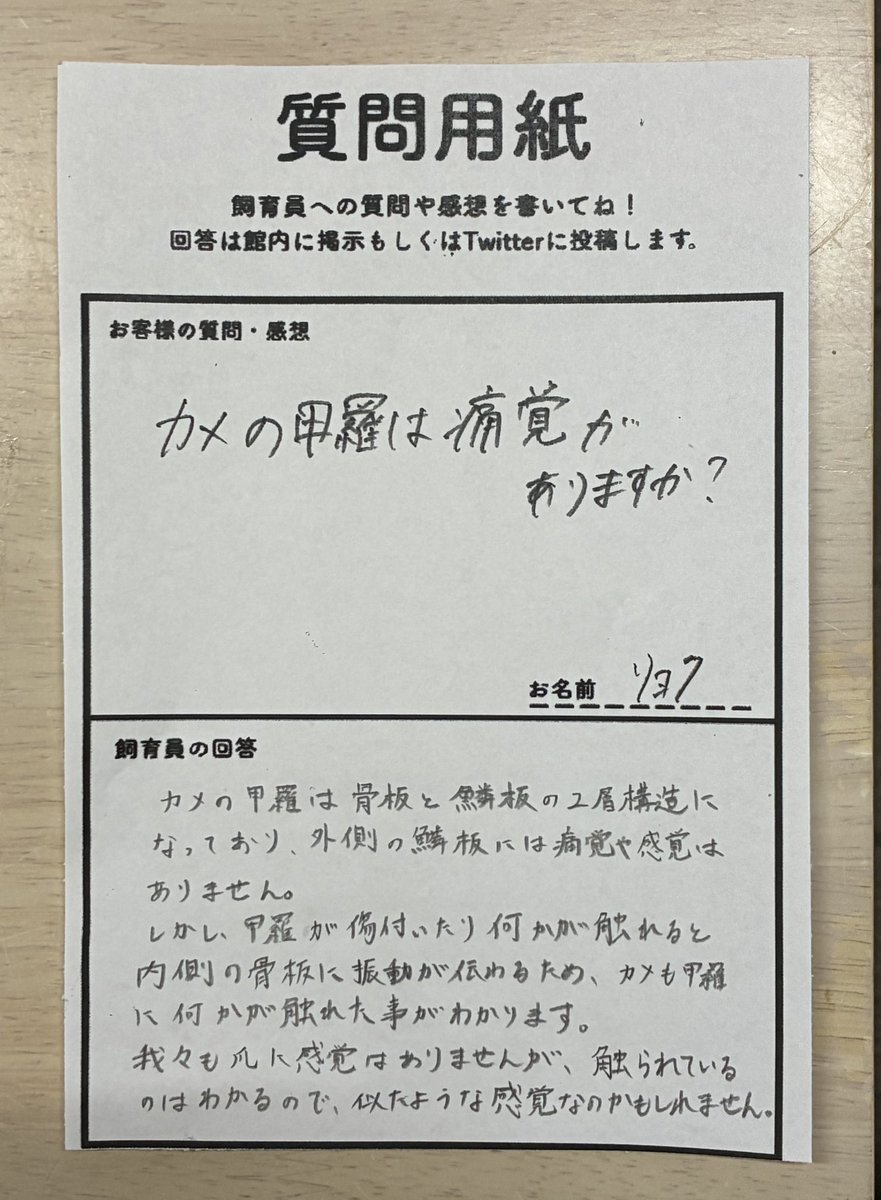 質問用紙
飼育員への質問や感想を書いてね！
回答は館内に掲示もしくはTwitterに投稿します。
お客様の質問・感想
カメの甲羅は痛覚が
ありますか？
お名前 リョク
飼育員の回答
カメの甲羅は骨板と鱗板の2層構造に
なっており、外側の鱗板には痛覚や感覚は
ありません。
しかし、甲羅が傷付いたり何かが触れると
内側の骨板に振動が伝わるため、カメも甲羅
に何かが触れた事がわかります。
我々も爪に感覚はありませんが、触られている
のはわかるので、似たような感覚なのかもしれません。